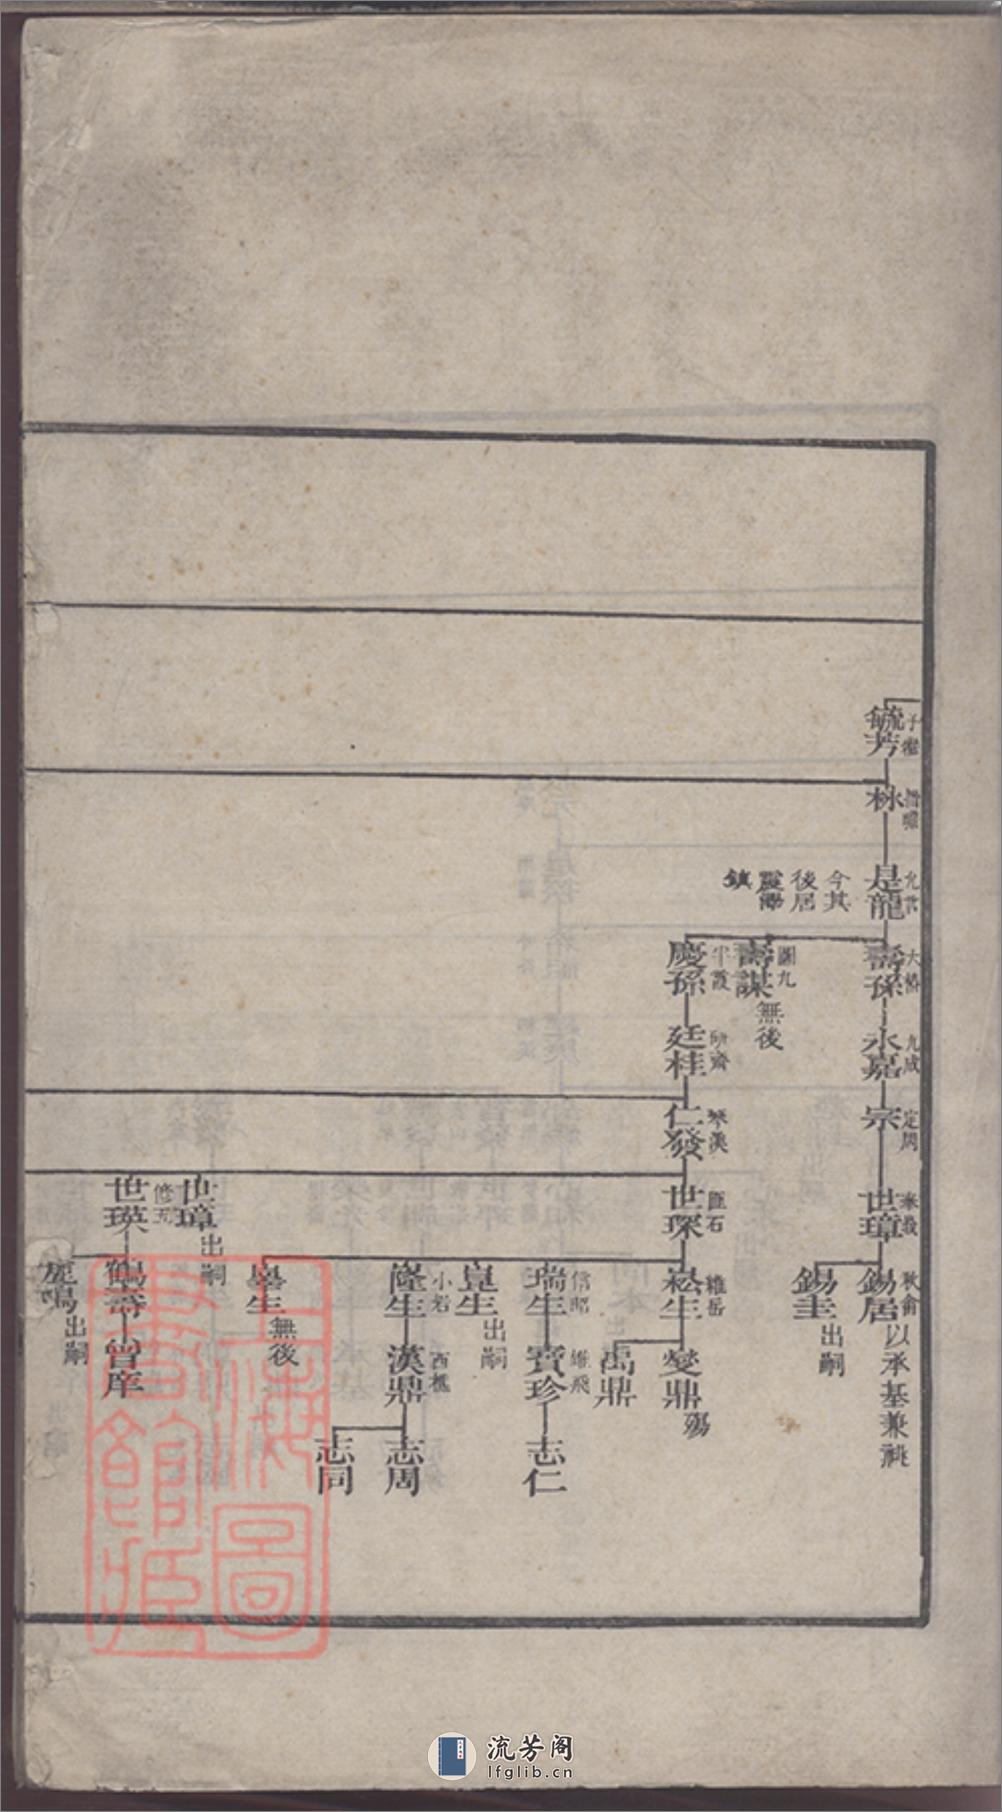 毓芳
林
是龍
允雲
今其
後居
霞嶼
鎮
壽孫
大椿
永嘉
九成
宗
定周
世璋
錫居
秋侖
以承基兼祧
錫圭
出嗣
壽謀
圖九
無後
慶孫
半霞
廷桂
研齋
仁發
琴溪
世琛
匪石
崧生
維岳
燮鼎
殤
禹鼎
瑞生
信昭
寶珍
維飛
志仁
崑生
出嗣
隆生
小岩
漢鼎
西樵
志周
志同
無後
世璋
出嗣
世瑛
修五
鶴壽
曾庠
鹿鳴
出嗣
上海圖書館藏
流芳阁
lfglib.cn